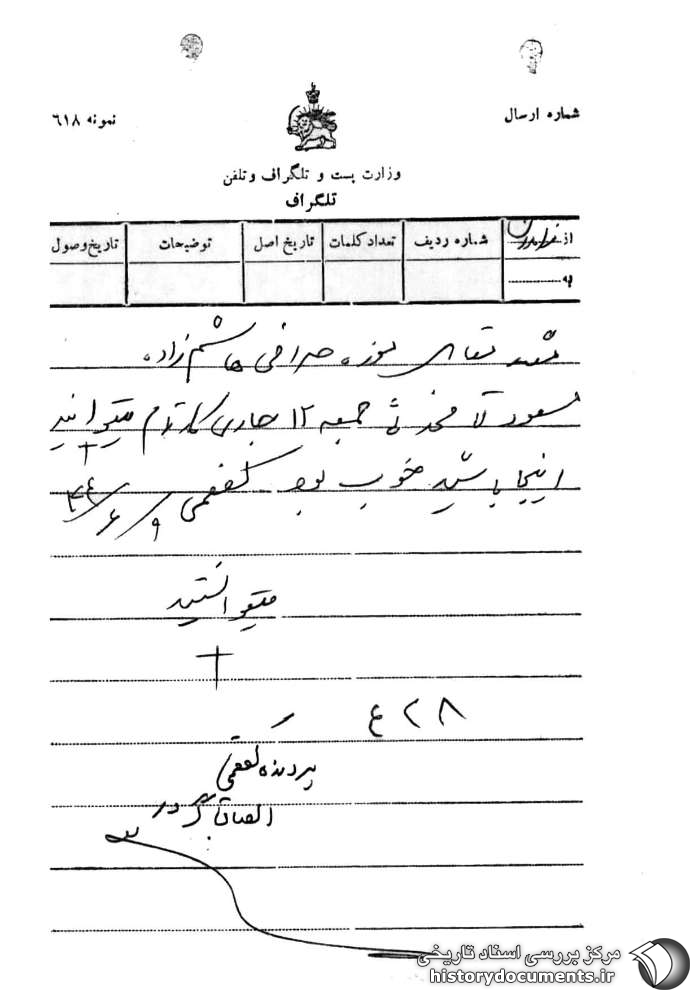 شماره ارسال
نمونه ۶۱۸
وزارت پست و تلگراف و تلفن
تلگراف
از شماره ردیف تعداد کلمات تاریخ اصل توضیحات تاریخ وصول
به
مشهد صرافی هاشم زاده
جمعه ۱۲ جاری میتوانید
اینجا باشید خوب بود کفعمی ۴۴/۶/۹
میتوانستید
۲۸ ع
پرونده کفعمی
الصاق گردد
مرکز بررسی اسناد تاریخی
historydocuments.ir